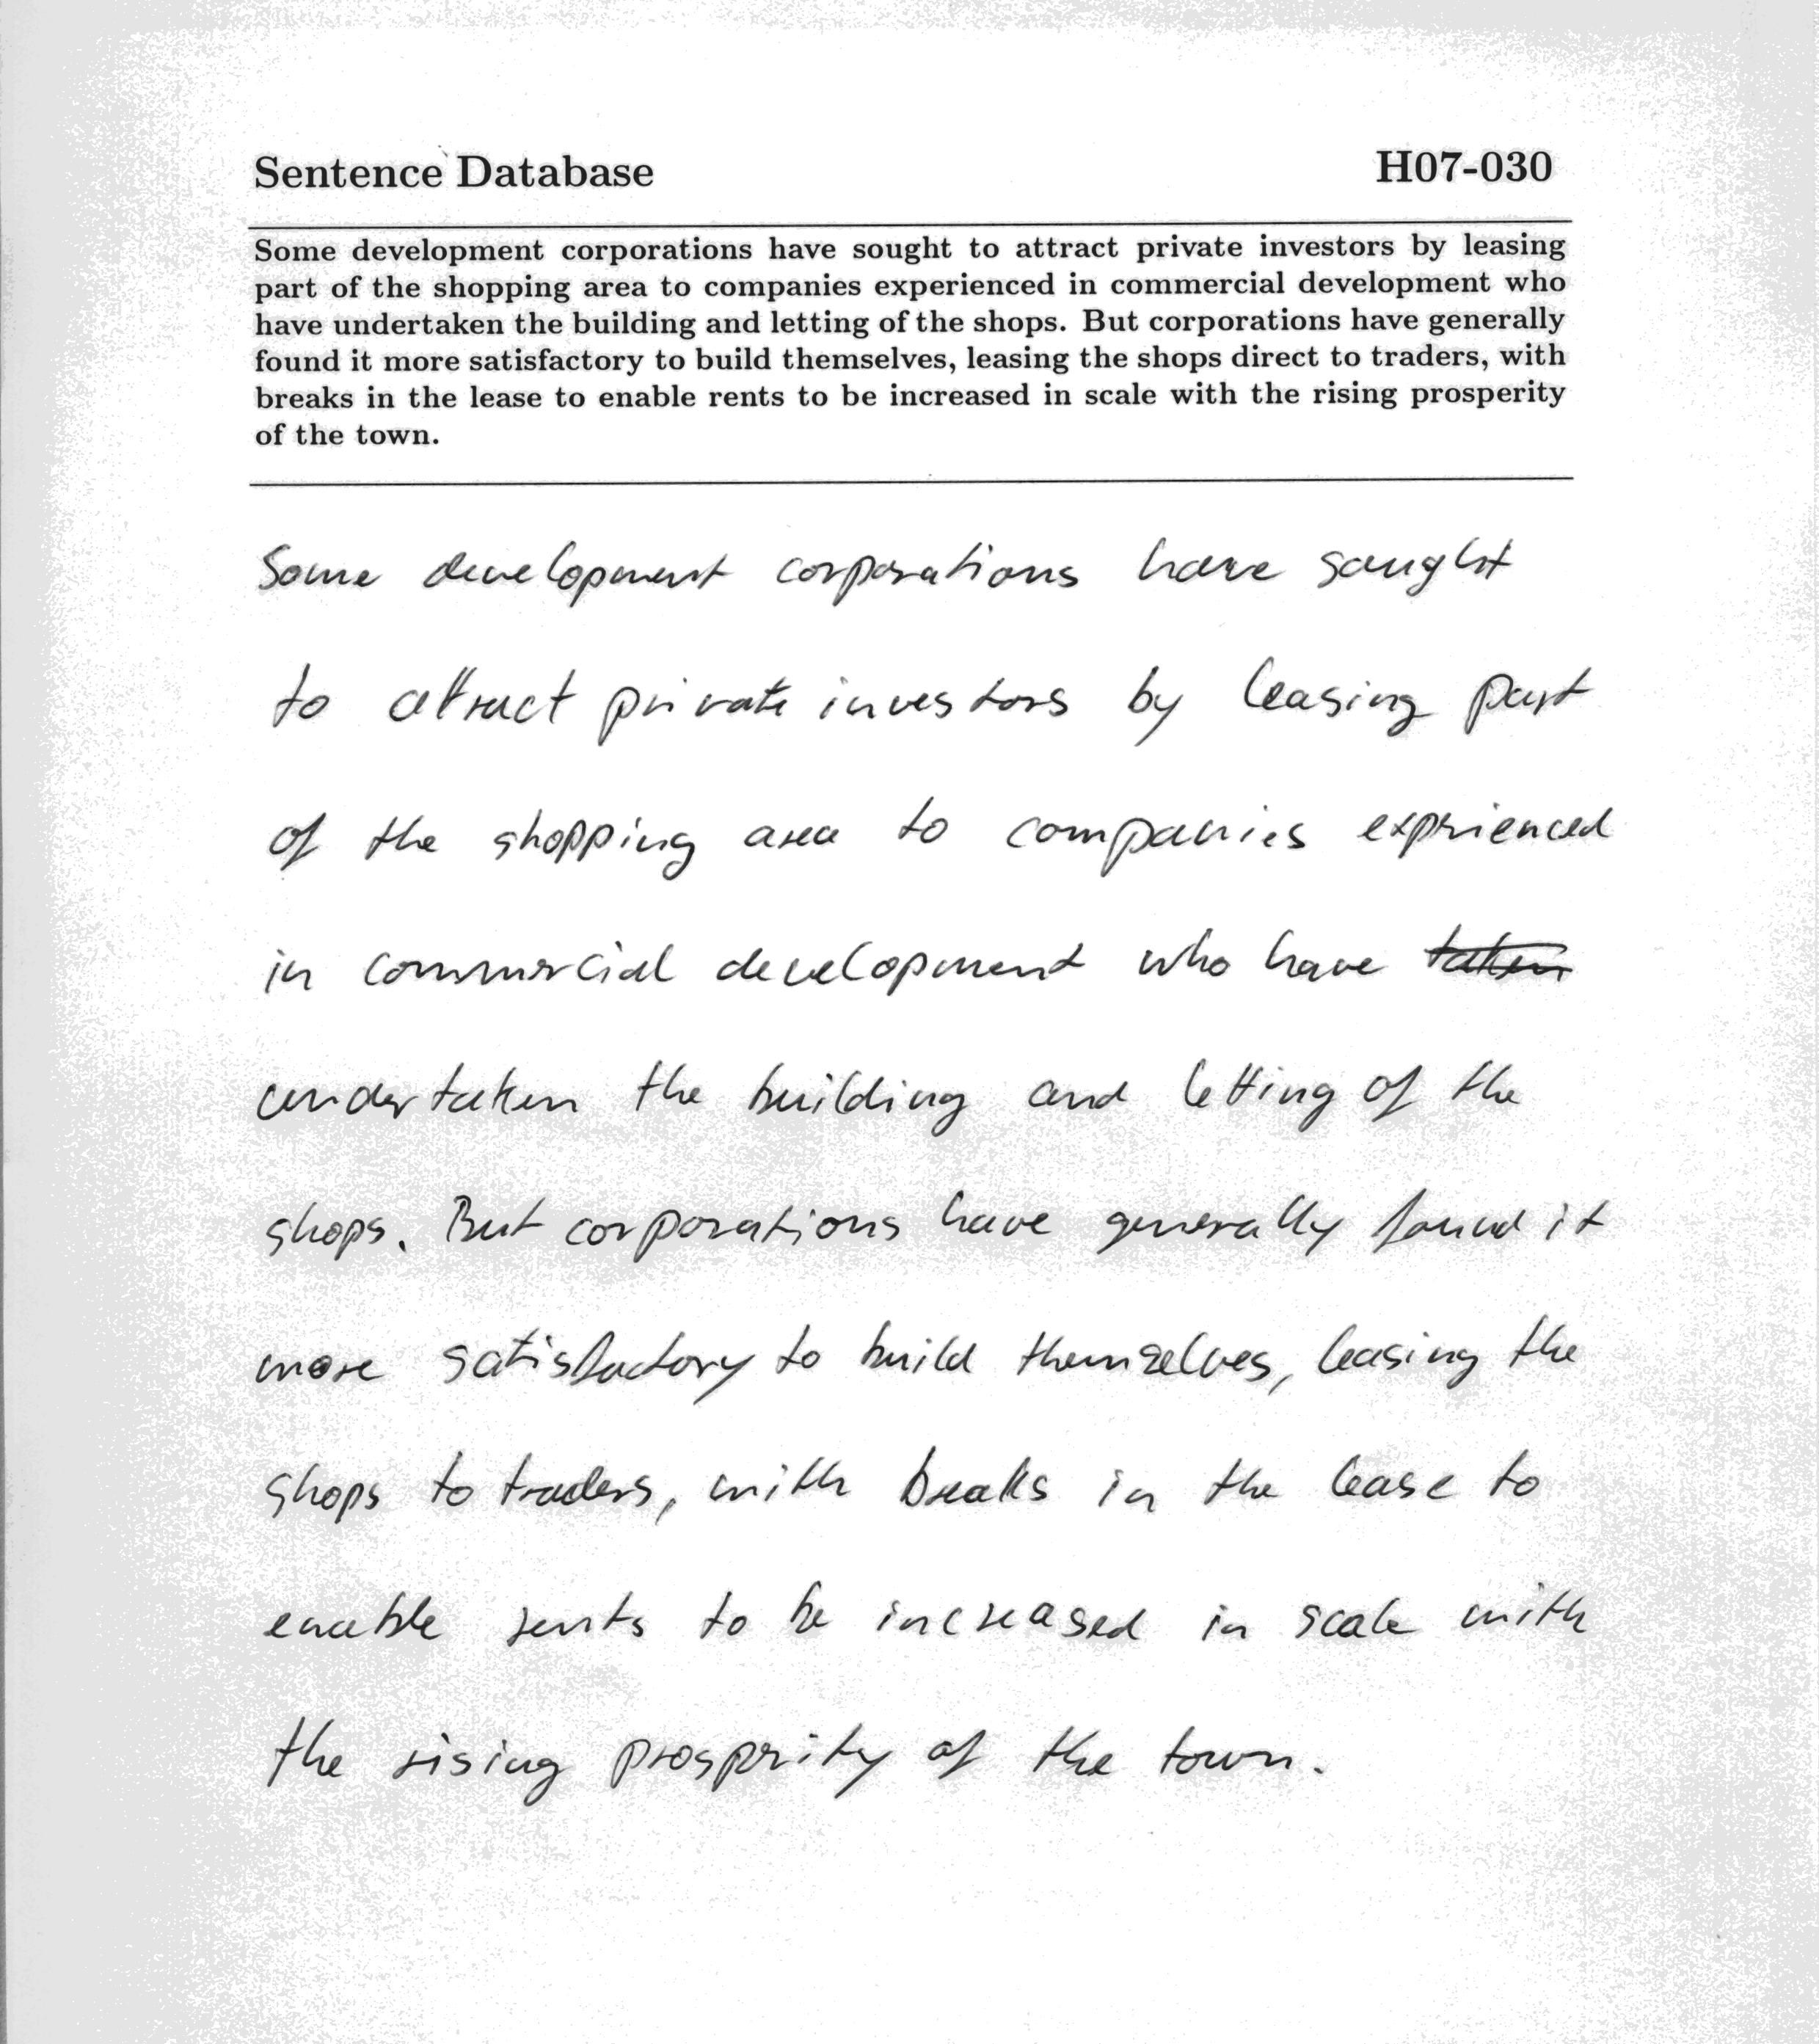 Sentence Database H07-030
Some development corporations have sought to attract private investors by leasing
part of the shopping area to companies experienced in commercial development who
have undertaken the building and letting of the shops. But corporations have generally
found it more satisfactory to build themselves, leasing the shops direct to traders, with
breaks in the lease to enable rents to be increased in scale with the rising prosperity
of the town.
Some development corporations have sought
to attract private investors by leasing part
of the shopping area to companies exprienced
in commercial development who have taken
undertaken the building and letting of the
shops. But corporations have generally found it
more satisfactory to build themselves, leasing the
shops to traders, with breaks in the lease to
enable rents to be increased in scale with
the rising prosperity of the town.